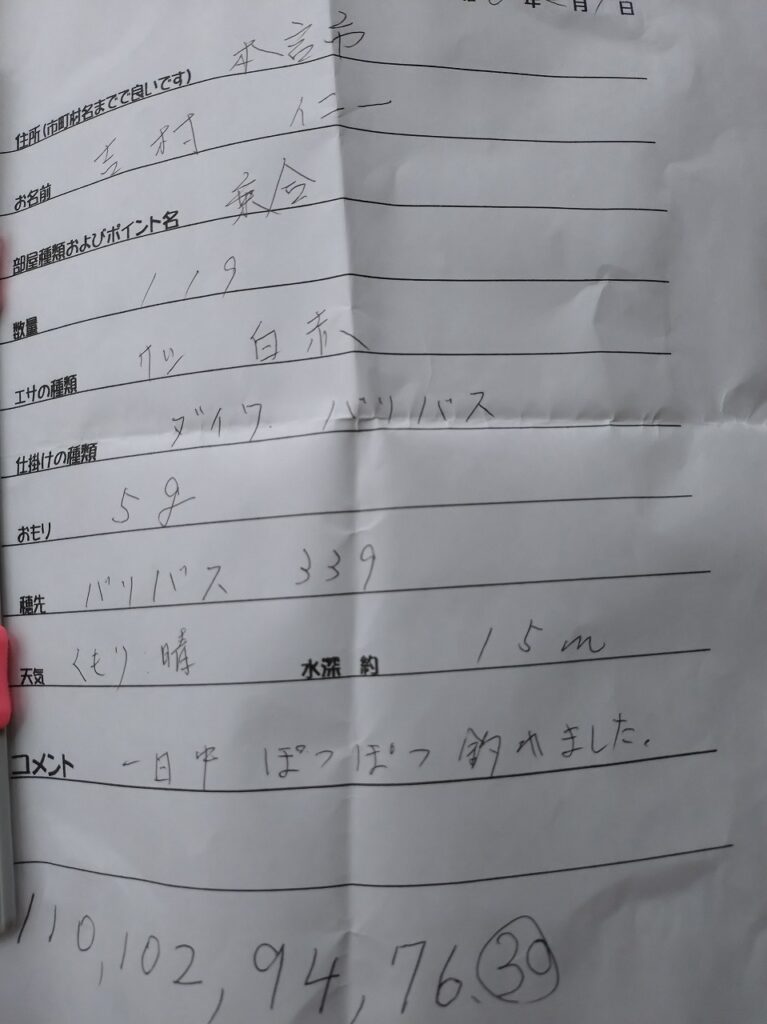 年 月1日
住所(市町村名までで良いです) 本宮市
お名前 吉村 仁一
部屋種類およびポイント名 乗合
数量 119
エサの種類 サシ 白赤
仕掛けの種類 ダイワ. バリバス
おもり 5g
穂先 バリバス 339
天気 くもり.晴 水深 約 15m
コメント 一日中 ぽつぽつ 釣れました。
110,102,94,76.39